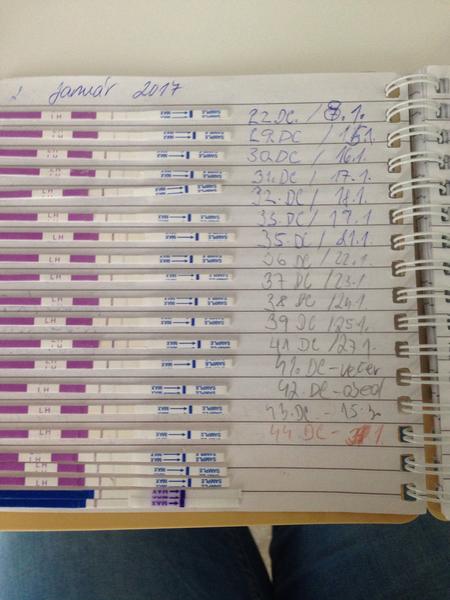 Január 2017
LH MAX SAMPLE 22.DC. / 8.1.
LH MAX SAMPLE 29.DC / 15.1.
LH MAX SAMPLE 30.DC / 16.1.
LH MAX SAMPLE 31.DC / 17.1.
LH MAX SAMPLE 32.DC / 18.1.
LH MAX SAMPLE 33.DC / 19.1.
LH MAX SAMPLE 35.DC / 21.1.
LH MAX SAMPLE 36 DC / 22.1.
LH MAX SAMPLE 37 DC / 23.1.
LH MAX SAMPLE 38 DC / 24.1.
LH MAX SAMPLE 39 DC / 25.1.
LH MAX SAMPLE 41 DC / 27.1.
LH MAX SAMPLE 41. DC - večer
LH MAX SAMPLE 42. DC - obed
LH MAX SAMPLE 43. DC -
LH MAX SAMPLE 44. DC -
LH MAX SAMPLE
LH MAX SAMPLE
LH MAX SAMPLE
MAX